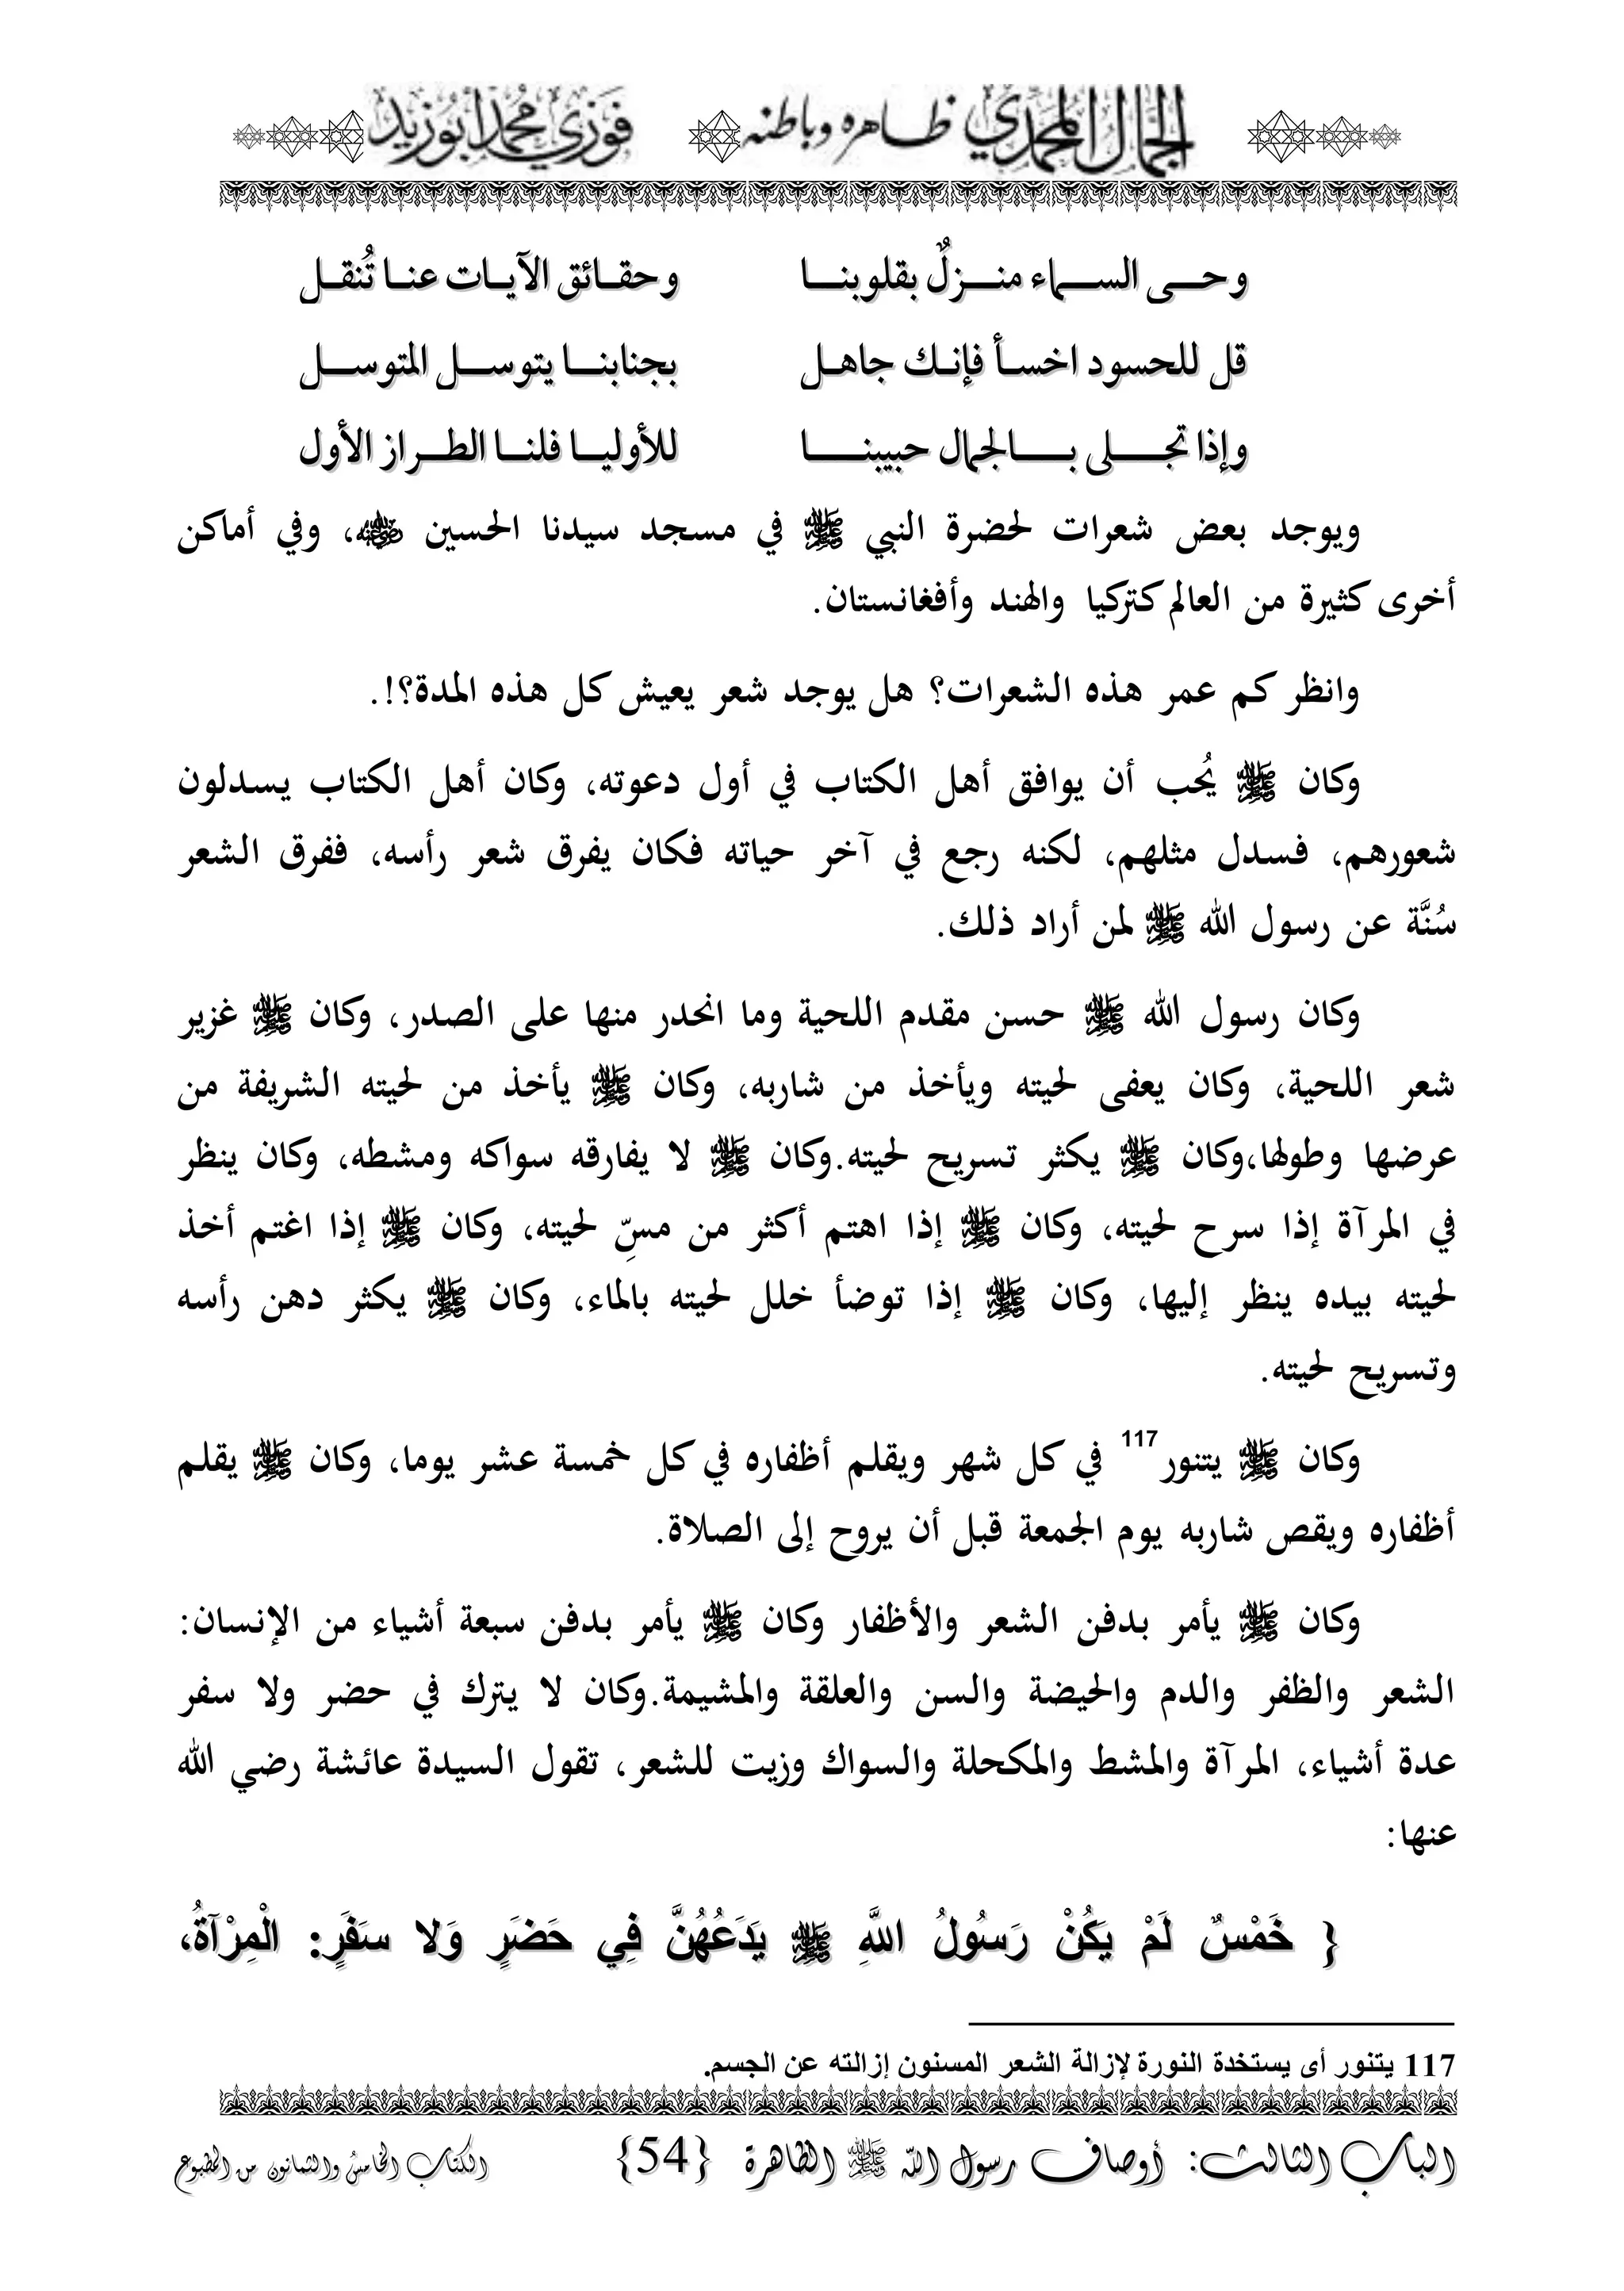 الجمال المحمدي ظاهره وباطنه فوزي محمد أبوزيد
وحى السماء منزلٌ بقلوبنا وحقائق الآيات عنا تُنقل
قل للحسود اخسأ فإنك جاهل بجنابنا يتوسل المتوسل
وإذا تجلى بالجمال حبيبنا للأوليا فلنا الطراز الأول
ويوجد بعض شعرات لحضرة النبي ﷺ في مسجد سيدنا الحسين ، وفي أماكن
أخرى كثيرة من العالم كتركيا والهند وأفغانستان.
وانظر كم عمر هذه الشعرات؟ هل يوجد شعر يعيش كل هذه المدة؟!.
وكان ﷺ يُحب أن يوافق أهل الكتاب في أول دعوته، وكان أهل الكتاب يسدلون
شعورهم، فسدل مثلهم، لكنه رجع في آخر حياته فكان يفرق شعر رأسه، ففرق الشعر
سُنَّة عن رسول الله ﷺ لمن أراد ذلك.
وكان رسول الله ﷺ حسن مقدم اللحية وما انحدر منها على الصدر، وكان ﷺ غزير
شعر اللحية، وكان يعفى لحيته ويأخذ من شاربه، وكان ﷺ يأخذ من لحيته الشريفة من
عرضها وطولها،وكان ﷺ يكثر تسريح لحيته.وكان ﷺ لا يفارقه سواكه ومشطه، وكان ينظر
في المرآة إذا سرح لحيته، وكان ﷺ إذا اهتم أكثر من مسِّ لحيته، وكان ﷺ إذا اغتم أخذ
لحيته بيده ينظر إليها، وكان ﷺ إذا توضأ خلل لحيته بالماء، وكان ﷺ يكثر دهن رأسه
وتسريح لحيته.
وكان ﷺ يتنور117 في كل شهر ويقلم أظفاره في كل خمسة عشر يوما، وكان ﷺ يقلم
أظفاره ويقص شاربه يوم الجمعة قبل أن يروح إلى الصلاة.
وكان ﷺ يأمر بدفن الشعر والأظفار وكان ﷺ يأمر بدفن سبعة أشياء من الإنسان:
الشعر والظفر والدم والحيضة والسن والعلقة والمشيمة.وكان لا يترك في حضر ولا سفر
عدة أشياء، المرآة والمشط والمكحلة والسواك وزيت للشعر، تقول السيدة عائشة رضي الله
عنها:
{ خَمْسٌ لَمْ يَكُنْ رَسُولُ اللَّهِ ﷺ يَدَعُهُنَّ فِي حَضَرٍ وَلا سَفَرٍ: الْمِرْآةُ،
117 يتنور أى يستخدة النورة لإزالة الشعر المسنون إزالته عن الجسم.
الباب الثالث: أوصاف رسول الله ﷺ الظاهرة {54} الكتاب الخامس والثمانون من المطبوع